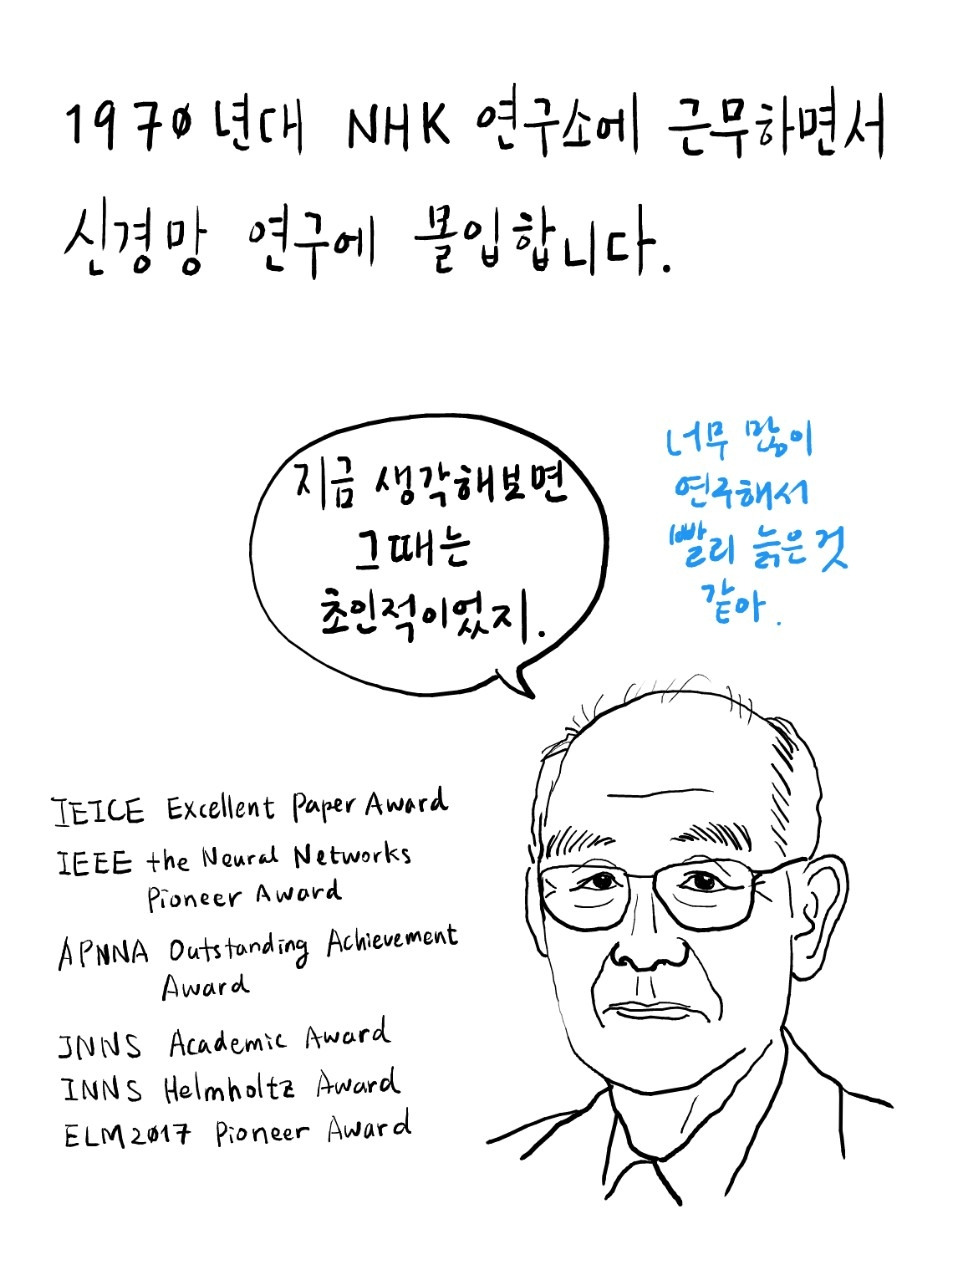 1970년대 NHK 연구소에 근무하면서
신경망 연구에 몰입합니다.
지금 생각해보면
그때는
초인적이었지.
너무 많이
연구해서
빨리 늙은것
같아.
IEICE Excellent Paper Award
IEEE the Neural Networks
Pioneer Award
APNNA Outstanding Achievement
Award
JNNS Academic Award
INNS Helmholtz Award
ELM2017 Pioneer Award